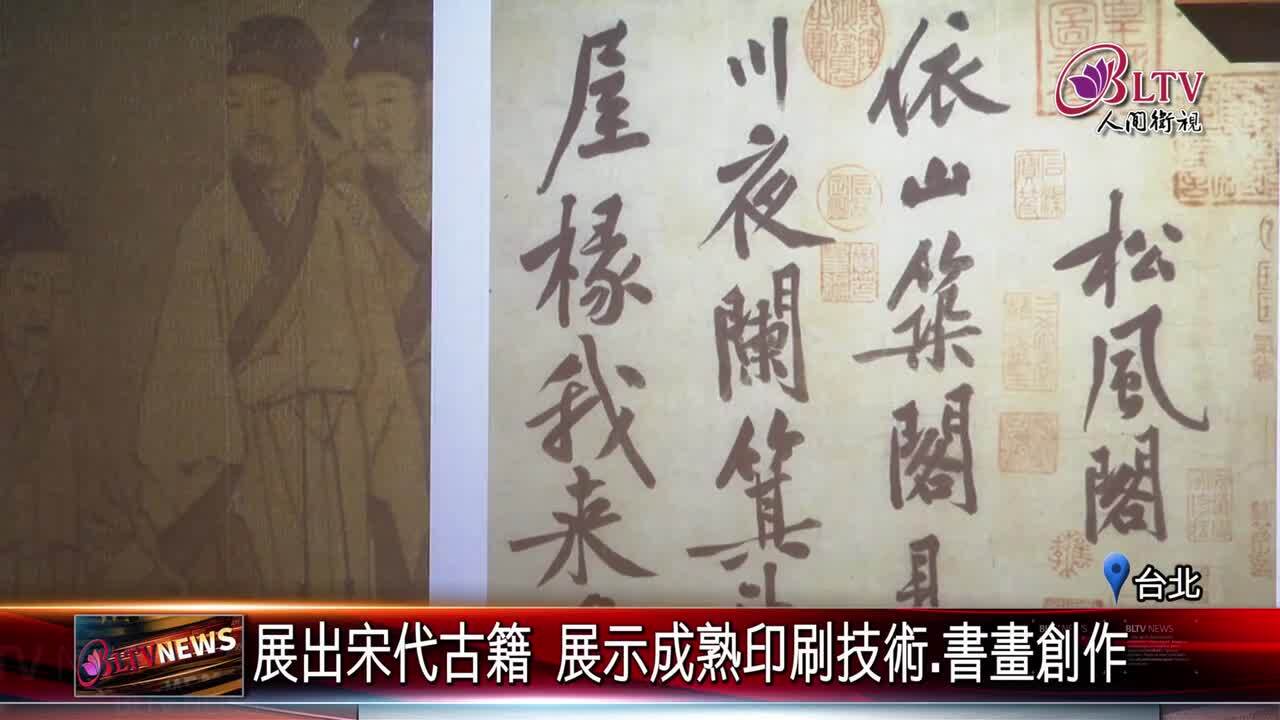 松風閣
依山築閣見
川夜闌箕斗
屋椽我来
BLTV
人间衛視
台北
BLTV NEWS
展出宋代古籍 展示成熟印刷技術.書畫創作
BLTV NEWS